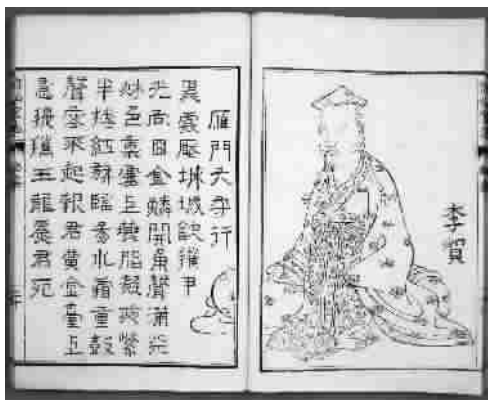 李賀
雁門太守行
黑雲壓城城欲摧甲
光向日金鱗開角聲滿天
秋色裏塞上燕脂凝夜紫
半捲紅旗臨易水霜重鼓
聲寒不起報君黃金臺上
意提攜玉龍爲君死